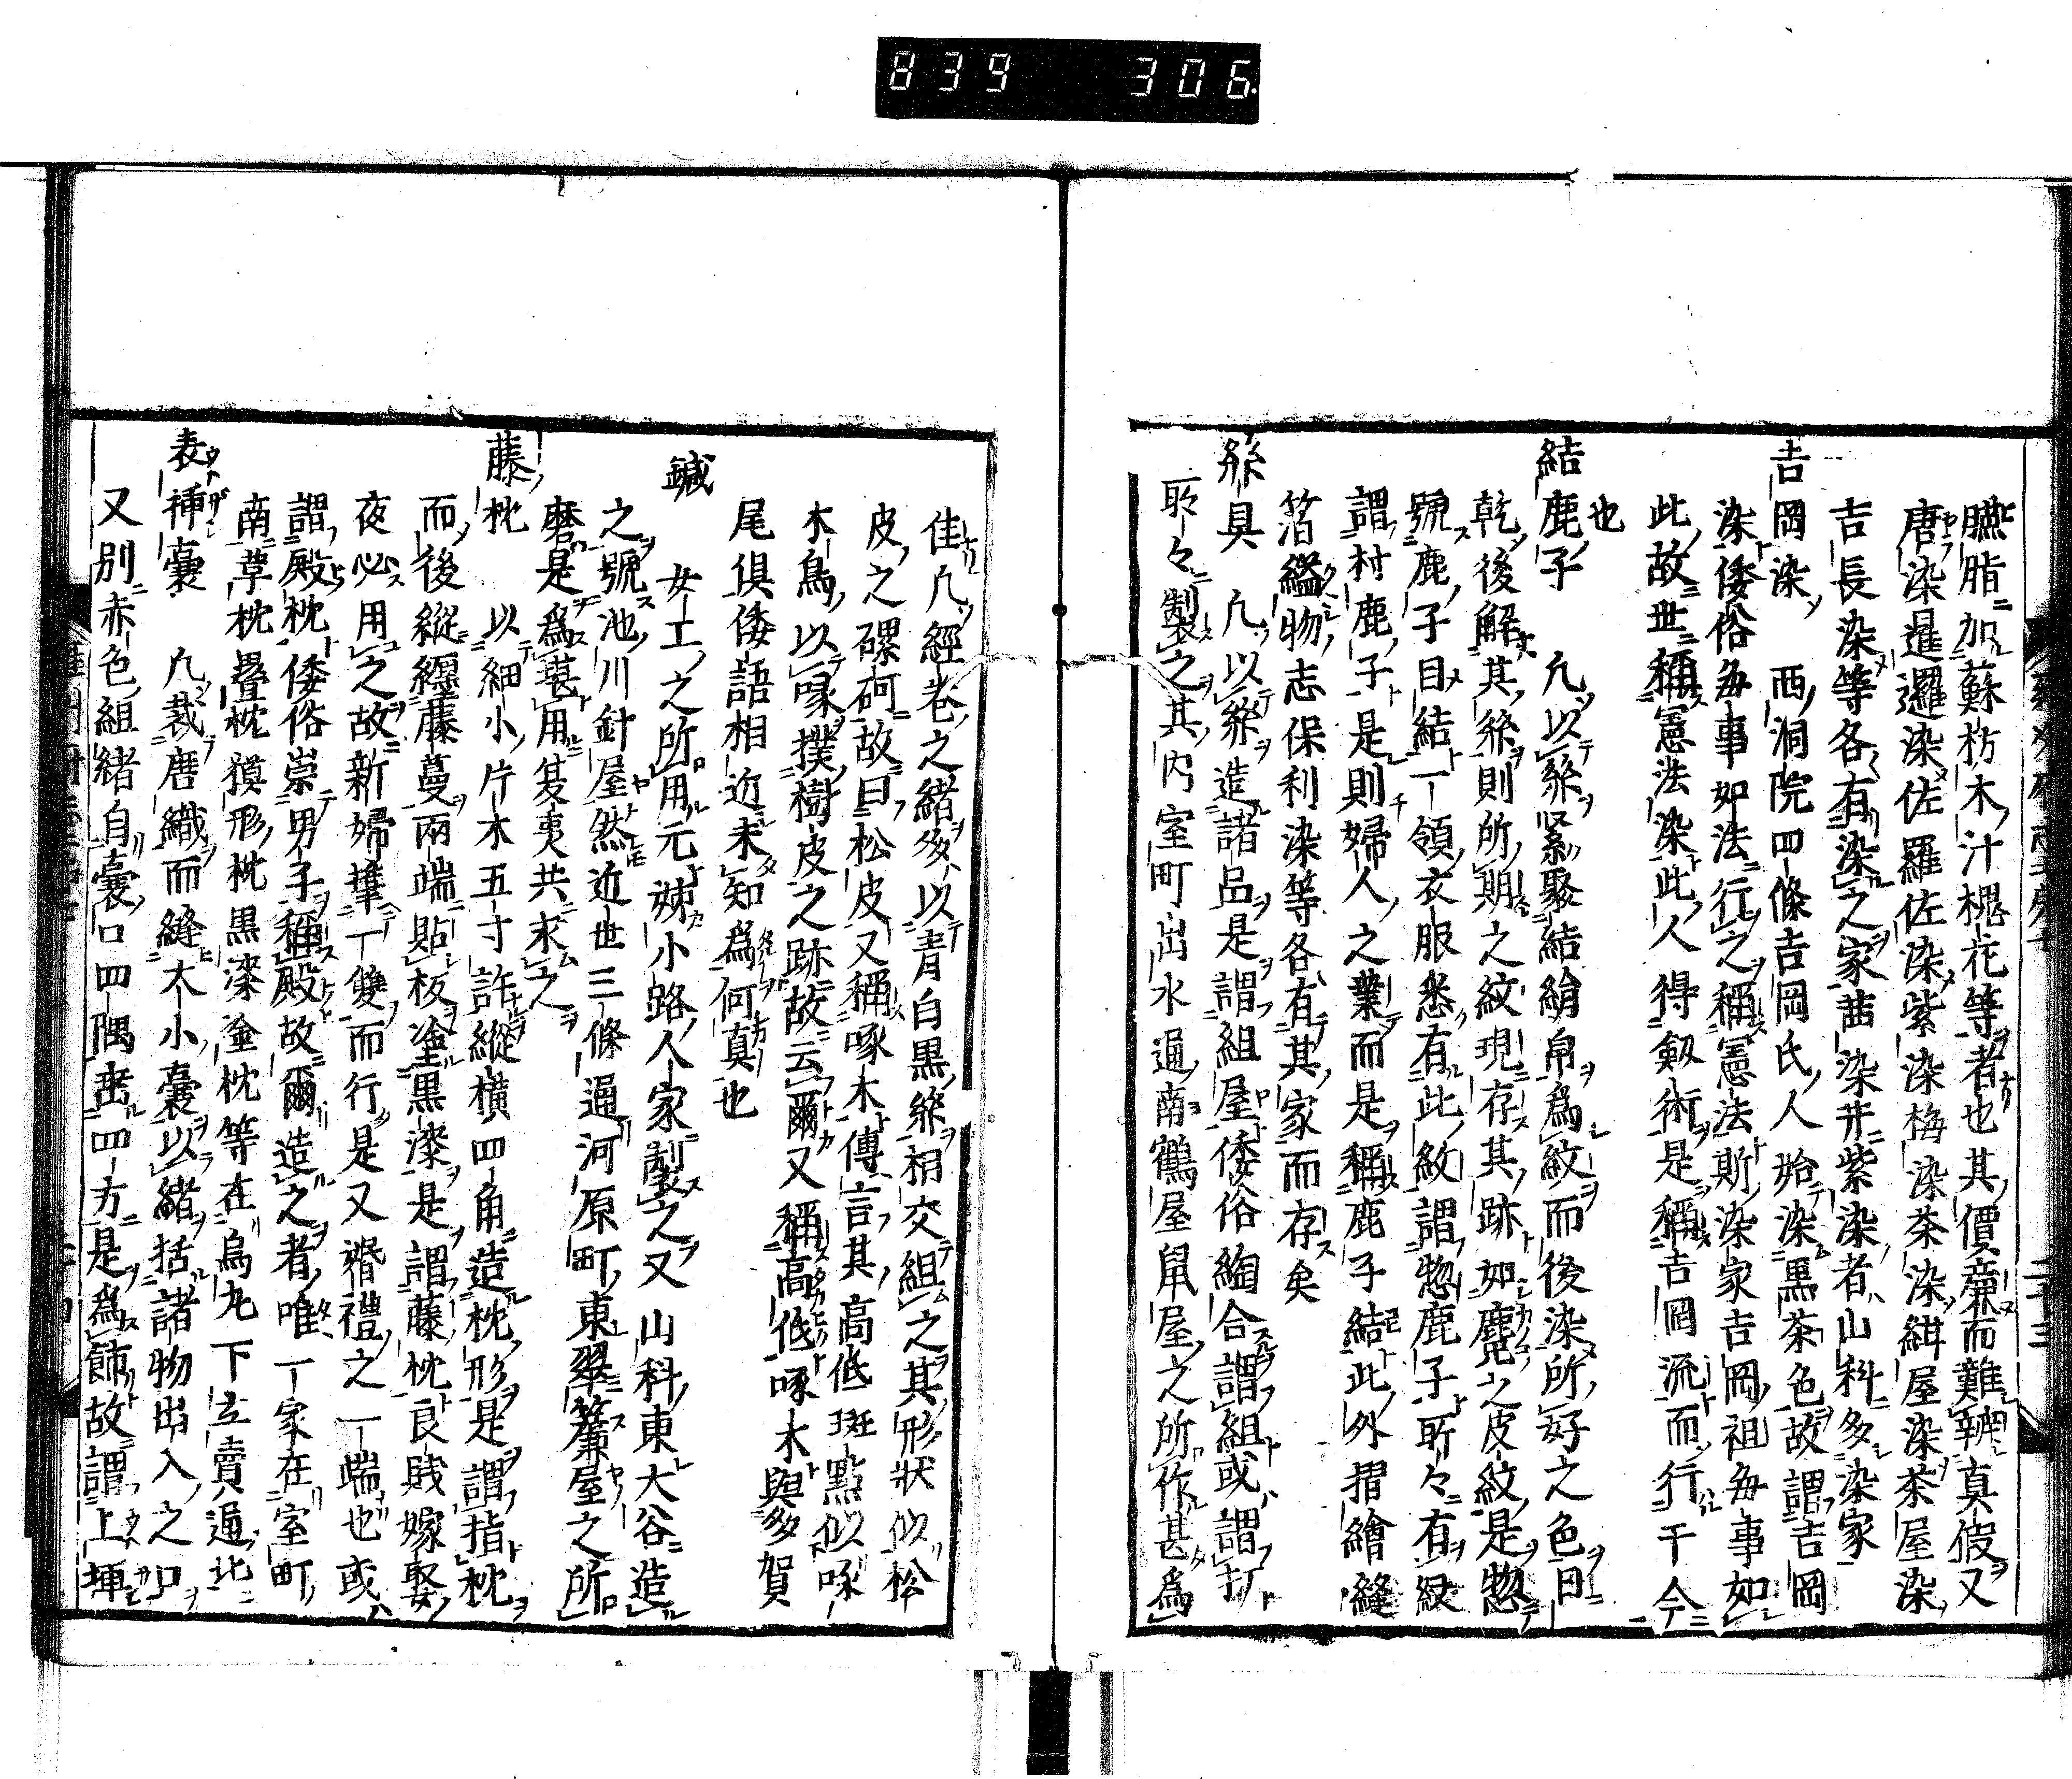 839 306
臙脂加蘇枋木汁槐花等者也其價廉而難辨真假又
唐染暹邏染佐羅佐染紫染梅染茶染紺屋染茶屋染
吉長染等各有染之家茜染并紫染者山科多染家
吉岡染 西洞院四條吉岡氏人始染黒茶色故謂吉岡
染倭俗每事如法行之稱憲法斯染家吉岡祖每事如
此故世稱憲法染此人得劔術是稱吉岡流而行于今
也
結鹿子 凢以絲緊聚結絹帛爲紋而後染所好之色日
乾後解其絲則所期之紋現存其跡如麑之皮紋是惣
號鹿子目結一領衣服悉有此紋謂惣鹿子所々有紋
謂村鹿子是則婦人之業而是稱鹿子結此外摺繪縫
箔纐物志保利染等各有其家而存矣
絲具 凢以絲造諸品是謂組屋倭俗綯合謂組或謂打
所々製之其内室町出水通南鶴屋鼠屋之所作甚爲
佳凢經卷之緒多以青白黒絲相交組之其形狀似松
皮之磥砢故曰松皮又稱啄木傳言其高低斑點似啄
木鳥以喙撲樹皮之跡故云爾又稱高低啄木與多賀
尾俱倭語相近未知爲何真也
鍼 女工之所用元姊小路人家製之又山科東大谷造
之號池川針屋然近世三條通河原町東翠簾屋之所
磨是爲甚用芟夷共求之
藤枕 以細小片木五寸許縱橫四角造枕形是謂指枕
而後縱纒藤蔓兩端貼板塗黒漆是謂藤枕良賤嫁娶
夜必用之故新婦攜一雙而行是又婚禮之一端也或
謂殿枕倭俗崇男子稱殿故爾造之者唯一家在室町
南草枕疊枕獏形枕黒漆塗枕等在烏丸下立賣通北
表揷囊 凢裁唐織而縫大小囊以緒括諸物出入之口
又別赤色組緒自囊口四隅出四方是爲飾故謂上揷